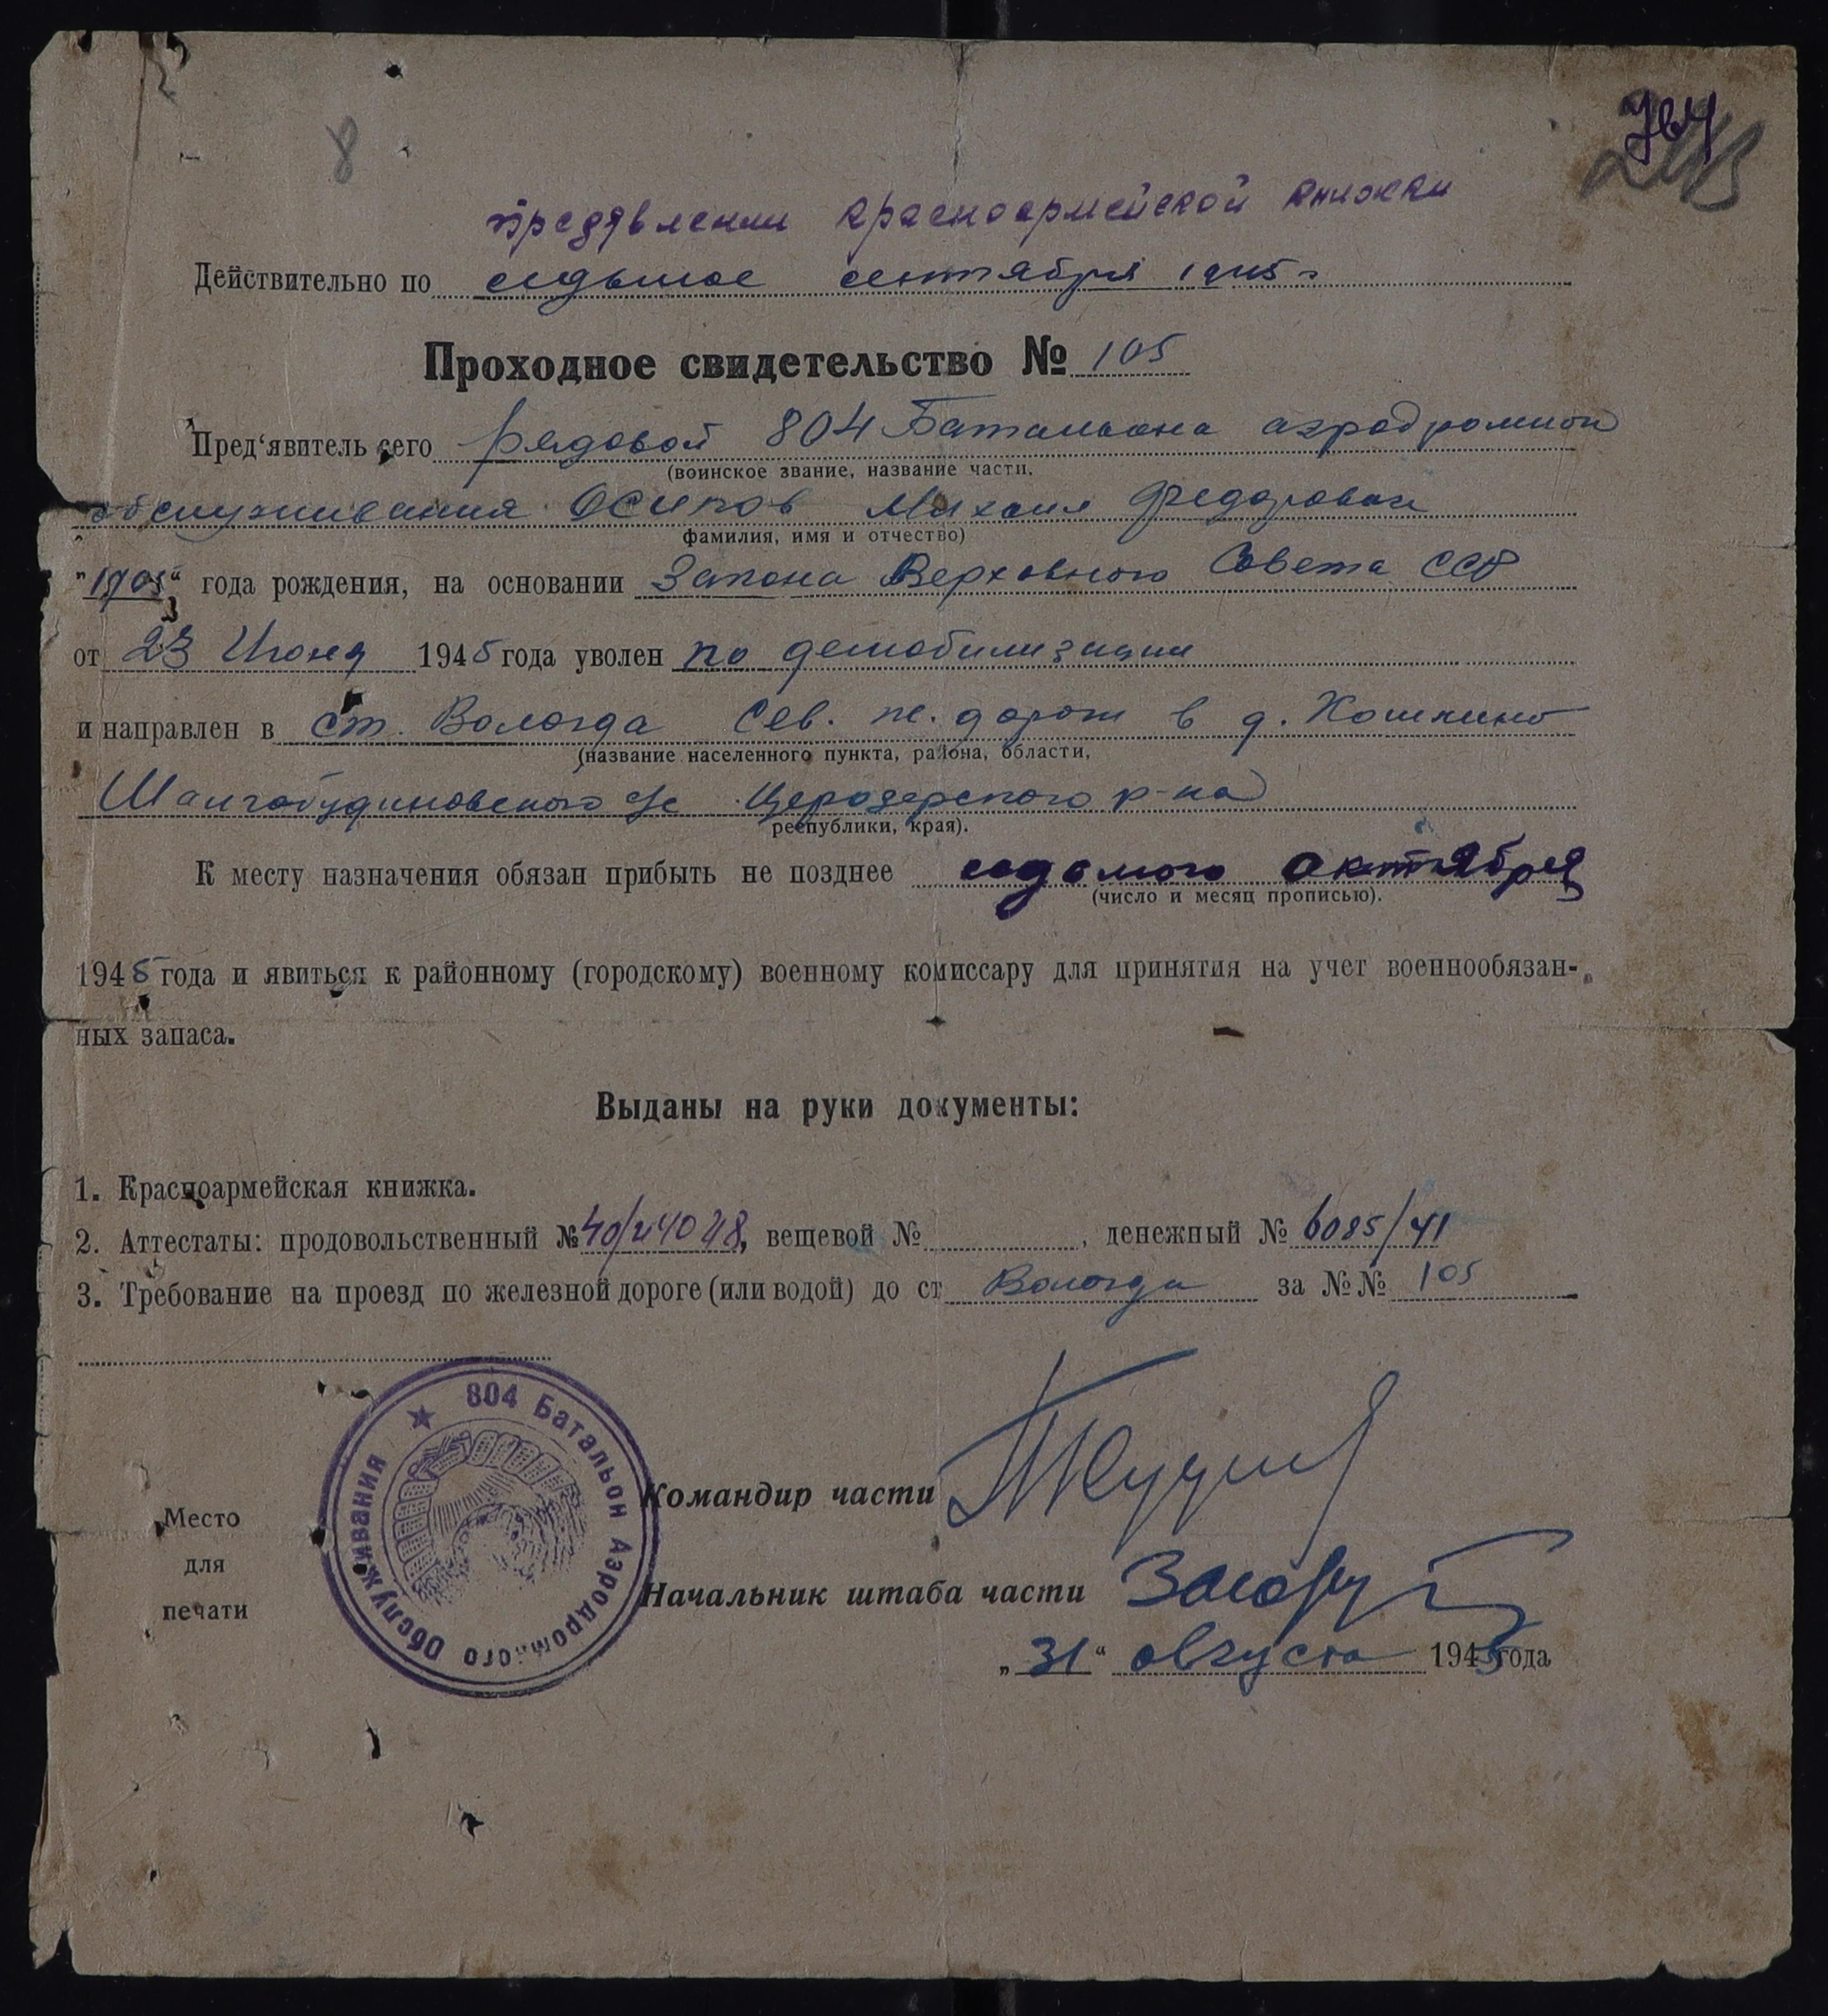 8
предявлении красноармейской книжки
Действительно по седьмое сентября 1945 г
Проходное свидетельство № 105
Пред‘явитель сего рядовой 804 Батальона аэродромной
(воинское звание, название части,
обслуживания Осипов Михаил Федорович
фамилия, имя и отчество)
"1905" года рождения, на основании Закона Верховного Совета ССР
от 23 Июня 1945 года уволен по демобилизации
и направлен в ст. Вологда Сев. ж. дорог в д. Кошкино
(название населенного пункта, района, области,
с/с р-на
республики, края).
К месту назначения обязан прибыть не позднее седьмого октября
(число и месяц прописью).
1945 года и явиться к районному (городскому) военному комиссару для принятия на учет военнообязан-
ных запаса.
Выданы на руки документы:
1. Красноармейская книжка.
2. Аттестаты: продовольственный № вещевой № , денежный № 6085/41
3. Требование на проезд по железной дороге (или водой) до ст Вологда за №№ 105
804 Батальон Аэродромного Обслуживания
Командир части
Место
для
печати
Начальник штаба части
„31“ августа 1945 года